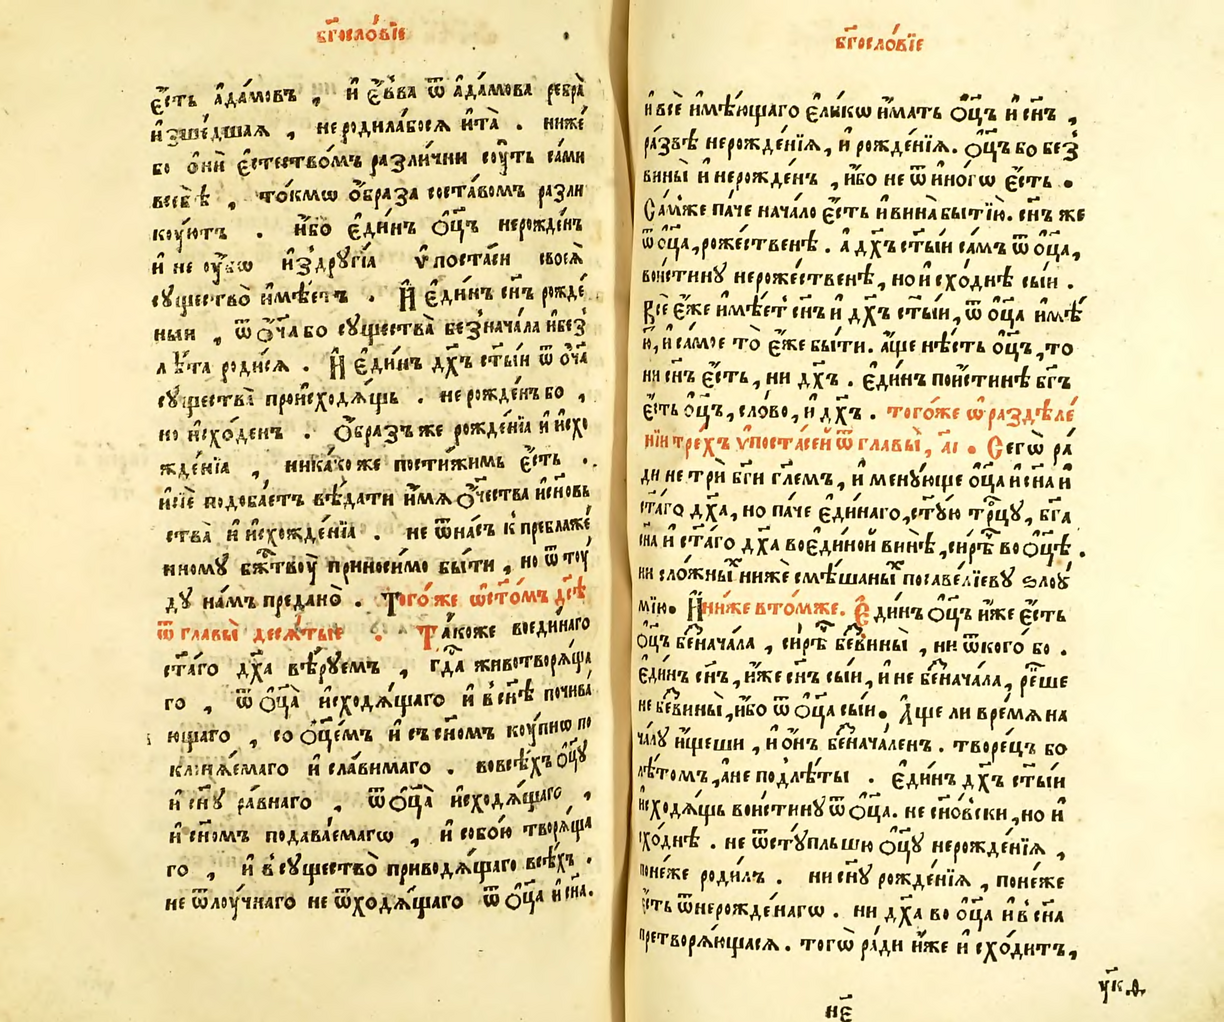 бг҃осло́вїе
є҆́сть а҆да́мовъ , и҆ є҆́вва ѿ а҆да́мова ребра̀
и҆зше́дшаѧ , неродила́босѧ и҆та̀ . ниже́
бо ѻ҆нѝ є҆стество́мъ разли́чни сꙋ́ть са́ми
всебѣ̀ , то́кмѡ ѻ҆́браза соста́вомъ разли
кꙋ́ютъ . и҆́бо є҆ди́нъ ѻ҆ц҃ъ неро́жденъ
и҆ не ᲂу҆́бѡ и҆здрꙋгі́ѧ ѵ҆поста́си своеѧ̀
сꙋщество̀ и҆мѣ́етъ . И҆ є҆ди́нъ сн҃ъ рожде́
ныи , ѿ ѻ҆́ча бо сꙋщества̀ безнача́ла и҆без̾
лѣ́та роди́сѧ . И҆ є҆ди́нъ дх҃ъ ст҃ы́и ѿ ѻ҆́ча
сꙋщества̀ происходѧ́щь . не рожде́нъ бо ,
но и҆схо́денъ . Ѻ҆́бразъ же рожде́нїа и҆ и҆схо
жде́нїа , ника́коже пости́жимь є҆́сть .
и҆сїѐ подоба́етъ вѣ́дати и҆́мѧ ѻ҆́чества и҆сновь
ства̀ и҆ и҆схожде́нїа . не ѿна́съ к̾ преблаже́
нному бж҃твꙋ̀ приноси́мо бы́ти , но ѿ тꙋ́
дꙋ на́мъ предано̀ . Того́же ѡ҆ст҃о́мъ дс҃ѣ
ѿ главы̀ десѧ́тые . Та́коже воеди́наго
ст҃а́го дх҃а вѣ́рꙋемъ , гд҃а животворѧ́ща
го , ѿ ѻ҆ц҃а̀ и҆сходѧ́щаго и҆ в̾сн҃ѣ почива́
ющаго , со ѻ҆ц҃е́мъ и҆ съсн҃омъ кꙋ́пнѡ по
кланѧ́емаго и҆ сла́вимаго . вовсѣ́хъ ѻ҆ц҃ꙋ̀
и҆ сн҃ꙋ ра́внаго , ѿ ѻ҆ц҃а̀ и҆сходѧ́щаго ,
и҆ сн҃омъ подава́емагѡ , и҆ собо́ю творѧ́ща
го , и҆ в̾сꙋщество̀ приводѧ́щаго всѣ́хъ .
не ѿлꙋ́чнаго не ѿходѧ́щаго ѿ ѻ҆ц҃а и҆ сн҃а.
бг҃осло́вїе
и҆ всѐ и҆мѣ́ющаго є҆ли́кѡ и҆́мать ѻ҆ц҃ъ и҆ сн҃ъ ,
ра́звѣ нерожде́нїѧ, и҆ рожде́нїѧ. ѻ҆ц҃ъ бо без̾
вины̀ и҆ нерожденъ , и҆́бо не ѿ и҆но́гѡ є҆́сть .
Са́мже па́че нача́ло є҆́сть и҆вина̀ бытїю̀. сн҃ъ же
ѿ ѻ҆ц҃а, рожественѣ̀ . а дх҃ъ ст҃ы́и са́мъ ѿ ѻ҆ц҃а,
вои́стинꙋ не роже́ственѣ, но и҆ схо́днѣ сы́и .
Всѐ є҆́же и҆мѣ́ет сн҃ъ и҆ дх҃ъ ст҃ы́и, ѿ ѻ҆ц҃а и҆мѣ́
й, и҆ са́мое то̀ є҆́же бы́ти. а҆́ще нѣ́сть ѻ҆ц҃ъ, то
ни сн҃ъ є҆́сть, ни дх҃ъ . є҆ди́нъ пои́стинѣ бг҃ъ
є҆́сть ѻ҆ц҃ъ, сло́во, и҆ дх҃ъ . того́же ѡ҆ раздѣле́
нїи тре́хъ ѵ҆поста́сей ѿ главы̀, а҃і . Сегѡ̀ ра́
ди не трѝ бг҃и гл҃емъ, и҆ менꙋ́юще ѻ҆ц҃а и҆ сн҃а и҆
ст҃а́го дх҃а, но па́че є҆ди́наго, ст҃ꙋ́ю трⷪ҇цꙋ, бг҃а
сн҃а и҆ ст҃а́го дх҃а воеди́ной винѣ̀, си́рѣⷱ҇ во ѻ҆ц҃ѣ̀ .
ни сло́жныⷯ нижѐ смѣ́шаныⷯ посаве́лїевꙋ ѕлоꙋ́
мїю. И҆ ни́же в то́мже. Є҆ди́нъ ѻ҆ц҃ъ и҆́же є҆́сть
ѻ҆ц҃ъ беⷥнача́ла , си́рѣⷱ҇ беⷥвины̀ , ни ѿкого́ бо .
є҆ди́нъ сн҃ъ, и҆́же сн҃ъ сы́и, и҆ не беⷥнача́ла, ре́кше
не беⷥвины̀, и҆́бо ѿ ѻ҆ц҃а сы́и. А҆́ще ли вре́мѧ на
ча́лꙋ и҆́щеши , и҆ ѻ҆́нъ беⷥнача́ленъ . творе́цъ бо
лѣ́томъ, а҆не под̾лѣ́ты . є҆ди́нъ дх҃ъ ст҃ы́и
и҆сходѧ́щь вои́стинꙋ ѿ ѻ҆ц҃а. не сно́вски, но и҆
схо́днѣ . не ѿстꙋ́пльшю ѻ҆ц҃ꙋ нерожде́нїѧ ,
поне́же роди́лъ . ни сн҃ꙋ рожде́нїѧ , поне́же
є҆́сть ѿнерожде́нагѡ . ни дх҃а во ѻ҆ц҃а и҆ в̾ сн҃а
претворѧ́ющасѧ. тогѡ̀ ра́ди и҆́же и҆ схо́дитъ,
не҃